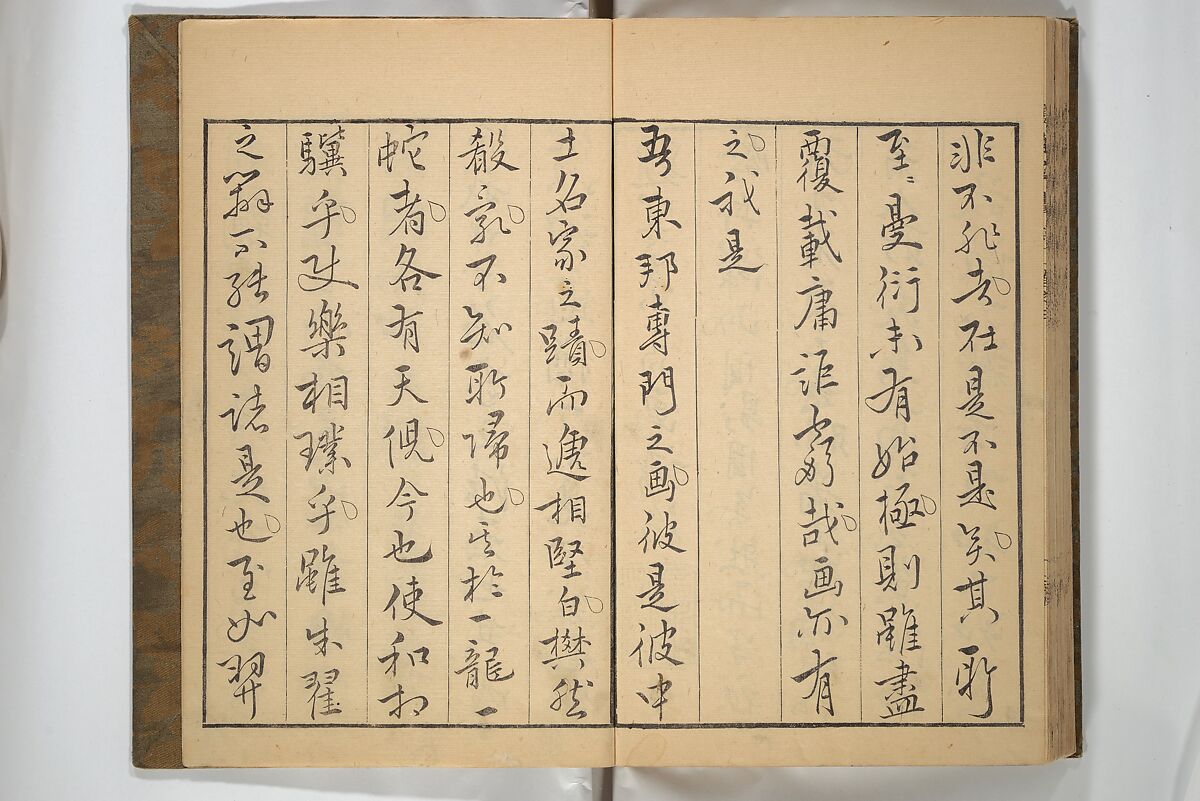 非不非者在是不是矣其所
至〻曼衍未有始極則雖盡
覆載庸詎窮哉画亦有
之我是
吾東邦専門之画彼是彼中
土名家之蹟而遞相堅白樊然
殽乱不知所帰也其於一龍一
蛇者各有天倪今也使和相
驥乎樂相璞乎雖朱翟
之辯不能謂諸是也至如羿